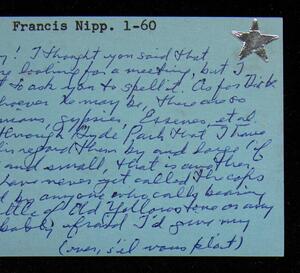 Francis Nipp. 1-60
! I thought you said that
looking for a meeting, but I
t to ask you to spell it. As for Dick
whoever he may be, there are so
means, gypsies, Essenes, et al
through Hyde Park that I have
disregard them by and large (if
and small, that is another
have never yet called the cops
d by anyone who calls bearing
ttle of Old Yellowstone or any
bably afraid I'd give my
(over, s'il vous plaît)